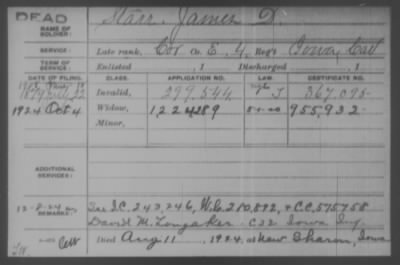 DEAD
NAME OF SOLDIER: Starr, James D.
SERVICE: Late rank, Cor Co. E, 4 Reg't Iowa Cav
TERM OF SERVICE: Enlisted , 1 Discharged , 1
DATE OF FILING. CLASS. APPLICATION NO. LAW. CERTIFICATE NO.
1879 Invalid, 299.544 367.095
1924 Oct 4 Widow, 1224289 955,932
Minor,
ADDITIONAL SERVICES:
12-8-24
REMARKS: See I.C. 243,246, W.C. 280,892, + C.C. 575758
David M. Longaker. C 32 Iowa Inf.
Died Aug 11, 1924, at New Sharon, Iowa